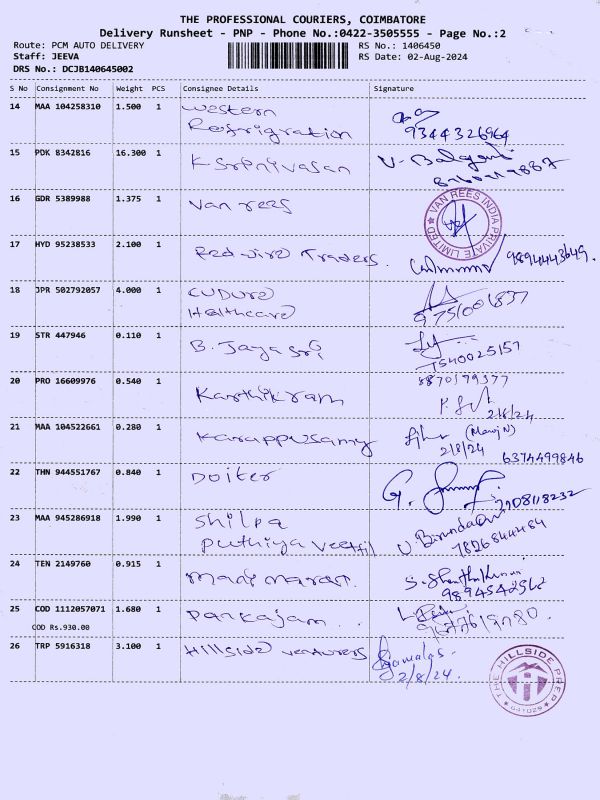 THE PROFESSIONAL COURIERS, COIMBATORE
Delivery Runsheet - PNP - Phone No.:0422-3505555 - Page No.:2
Route: PCM AUTO DELIVERY
RS No.: 1406450
Staff: JEEVA
RS Date: 02-Aug-2024
DRS No.: DCJB140645002
S No Consignment No Weight PCS Consignee Details Signature
14 MAA 104258310 1.500 1 Western
Refrigration
9344326964
15 PDK 8342816 16.300 1 K Srinivasan
16 GDR 5389988 1.375 1 Van rees
VAN REES INDIA PRIVATE LIMITED
17 HYD 95238533 2.100 1 Redwire Traders
9894443649.
18 JPR 502792057 4.000 1
Healthcare
9751001837
19 STR 447946 0.110 1 B. Jayasri
7540025157
20 PRO 16609976 0.540 1 Karthikram
8870199377
2/8/24
21 MAA 104522661 0.280 1 Karappusamy
(Manoj N)
2/8/24
6374499846
22 THN 944551767 0.840 1 Doiter
G.
23 MAA 945286918 1.990 1 Shilpa
Puthiya Veettil
7826844484
24 TEN 2149760 0.915 1 Manimaran.
9894542562
25 COD 1112057071 1.680 1 Pankajam
COD Rs.930.00
26 TRP 5916318 3.100 1 Hillside venturers
2/8/24.
THE HILLSIDE PREP
641029